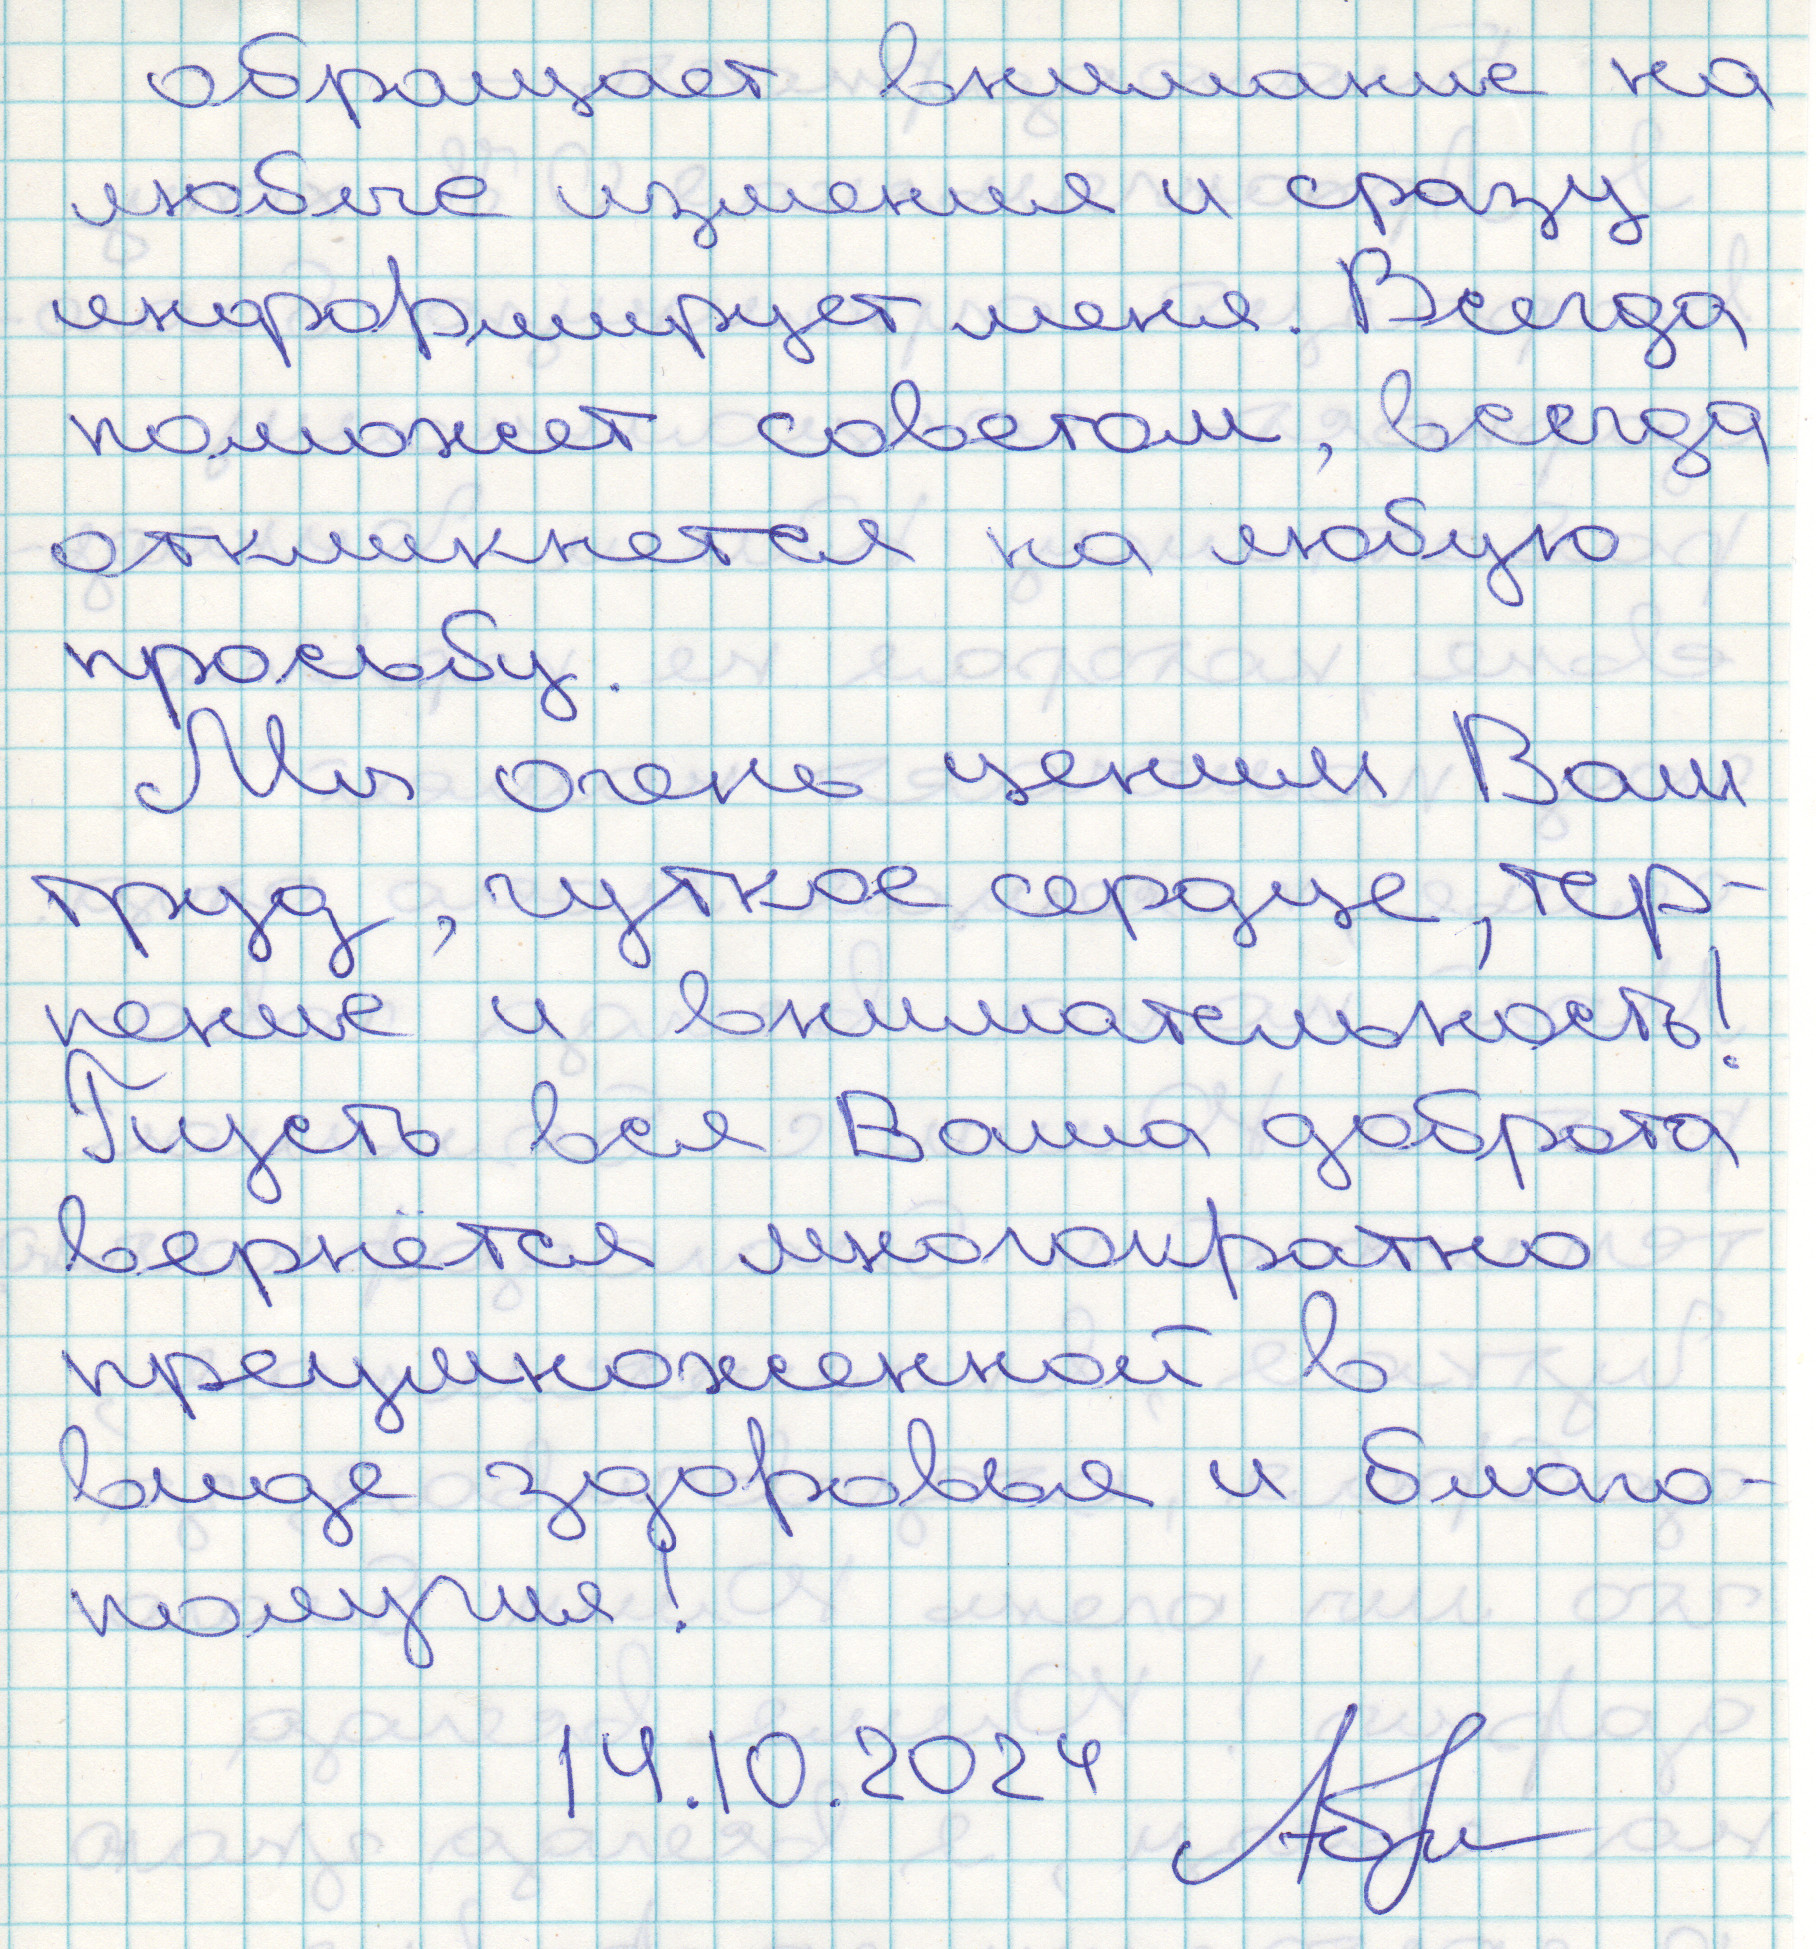 обращает внимание на
любые изменения и сразу
информирует меня. Всегда
поможет советом, всегда
откликнется на любую
просьбу.
Мы очень ценим Ваш
труд, чуткое сердце, тер-
пение и внимательность!
Пусть вся Ваша доброта
вернётся многократно
преумноженной в
виде здоровья и благо-
получия!
14.10.2024